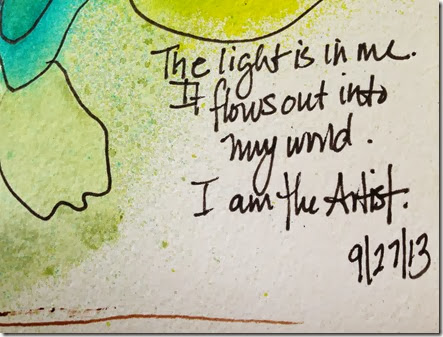 The light is in me.
It flows out into
my world.
I am the Artist.
9/27/13